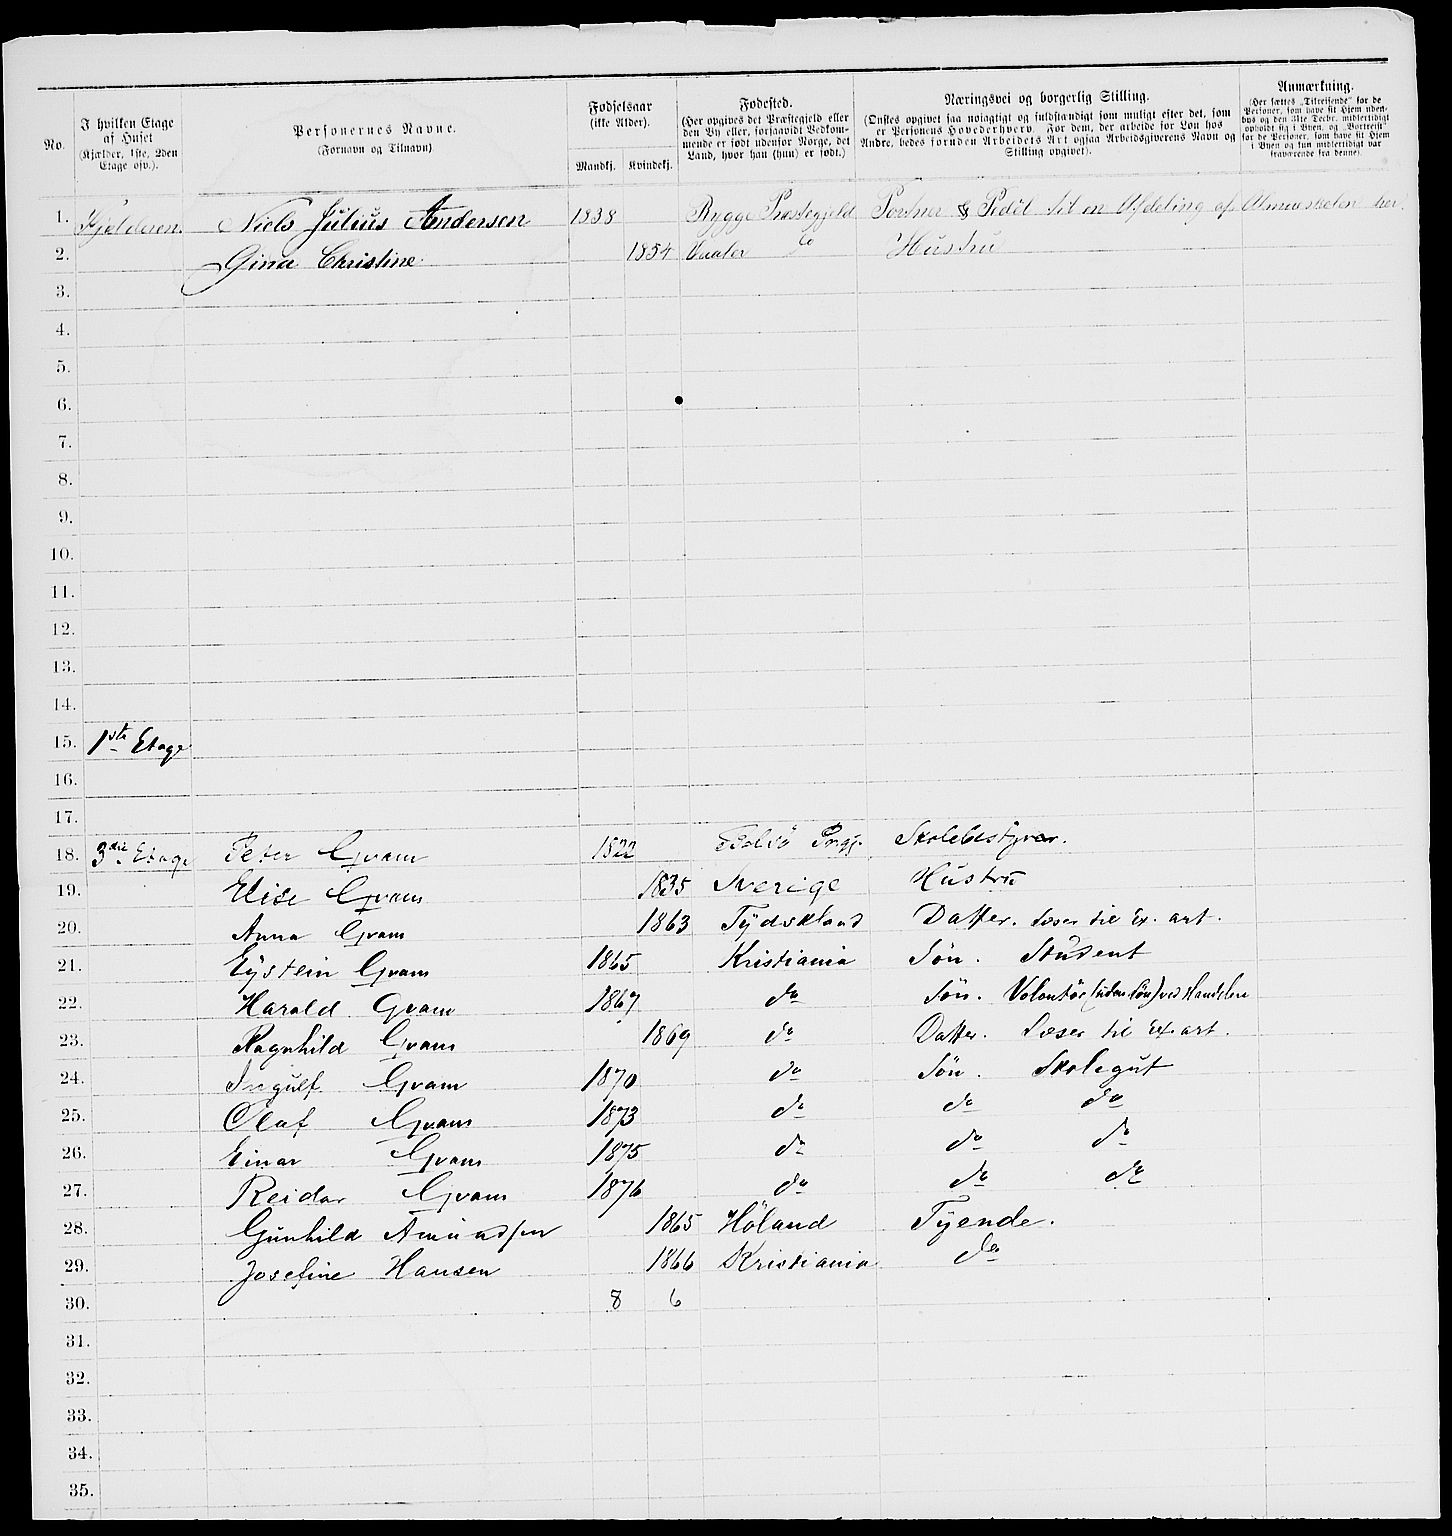 No.
I hvilken Etage
af Huset
(Kjælder, 1ste, 2den
Etage osv.).
Personernes Navne.
(Fornavn og Tilnavn)
Fødselsaar
(ikke Alder).
Mandkj. Kvindekj.
Fødested.
(Her opgives det Præstegjeld eller
den By eller, forsaavidt Vedkom-
mende er født udenfor Norge, det
Land, hvor han (hun) er født.)
Næringsvei og borgerlig Stilling.
(Ønskes opgivet saa nøiagtigt og fuldstændigt som muligt efter det, som
er Personens Hovederhverv. For dem, der arbeide for Løn hos
Andre, bedes foruden Arbeidets Art ogsaa Arbeidsgiverens Navn og
Stilling opgivet).
Anmærkning.
(Her sættes „Tilreisende“ for de
Personer, som have sit Hjem uden-
bys og den 31te Decbr. midlertidigt
opholdt sig i Byen, og „Bortreist“
for de Personer, som have sit Hjem
i Byen og kun midlertidigt var
fraværende fra denne).
1. Kjelderen Niels Julius Andersen 1838 Rygge Præstegjeld Portner & Pedel til en Afdeling af Almueskolen her.
2. Gina Christine 1854 Vaaler do Hustru
3.
4.
5.
6.
7.
8.
9.
10.
11.
12.
13.
14.
15. 1ste Etage
16.
17.
18. 3die Etage Peter Gram 1822 Skolebestyrer.
19. Elise Gram 1835 Sverige Hustru
20. Anna Gram 1863 Tydskland Datter. Læser til Ex. art.
21. Eystein Gram 1865 Kristiania Søn. Student
22. Harald Gram 1867 do Søn. Volontør (uden Løn) ved Handelen
23. Ragnhild Gram 1869 do Datter. Læser til Ex. art.
24. Ingulf Gram 1870 do Søn. Skolegut
25. Olaf Gram 1873 do do do
26. Einar Gram 1875 do do do
27. Reidar Gram 1876 do do do
28. Gunhild Amundsen 1865 Høland Tyende.
29. Josefine Hansen 1866 Kristiania do
30. 8 6
31.
32.
33.
34.
35.